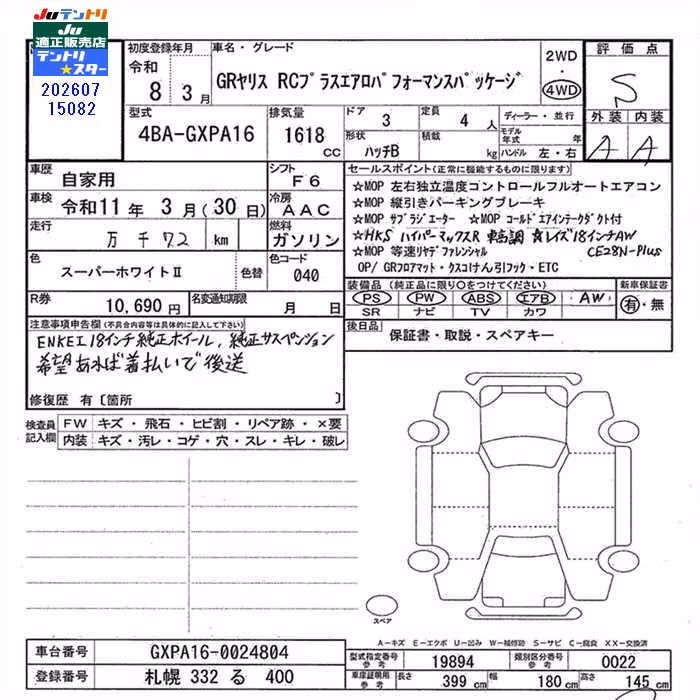 JUテントリ
JU
適正販売店
テントリ
★スター
202607
15082
初度登録年月
令和
8 3月
車名・グレード
GRヤリス RCプラスエアロパフォーマンスパッケージ
2WD
・
4WD
評価点
S
外装 内装
A A
型式
4BA-GXPA16
排気量
1618
cc
ドア
3
形状
ハッチB
定員
4人
積載
kg
ディーラー・並行
モデル年式 年
ハンドル 左・右
車歴
自家用
シフト
F6
車検
令和11年 3月(30日)
冷房
AAC
走行
万 千 72 km
燃料
ガソリン
色
スーパーホワイトⅡ
色替
色コード
040
R券
10,690円
名変通知期限
月 日
セールスポイント(正常に機能するものに限ります)
☆MOP 左右独立温度コントロールフルオートエアコン
☆MOP 縦引きパーキングブレーキ
☆MOP サブラジエーター ☆MOP コールドエアインテークダクト付
☆HKS ハイパーマックスR 車高調 ☆レイズ18インチAW
☆MOP 等速リヤデファレンシャル CE28N-Plus
OP/ GRフロアマット・クスコけん引フック・ETC
装備品(純正品に限り○をつけてください)
PS PW ABS エアB AW
SR ナビ TV カワ
新車保証書
有・無
後日品
保証書・取説・スペアキー
注意事項申告欄(不具合内容等は具体的に記入して下さい)
ENKEI 18インチ純正ホイール,純正サスペンション
希望あれば着払いで後送
修復歴 有〔箇所 〕
検査員
記入欄
FW キズ・飛石・ヒビ割・リペア跡・×要
内装 キズ・汚レ・コゲ・穴・スレ・キレ・破レ
スペア
A-キズ E-エクボ U-凹み W-補修跡 S-サビ C-腐食 XX-交換済
車台番号
GXPA16-0024804
登録番号
札幌 332 る 400
型式指定番号
参考
19894
類別区分番号
参考
0022
車庫証明用
参考
長さ 399cm 幅 180cm 高さ 145cm